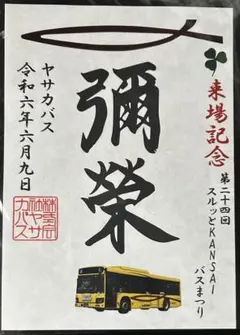 来場記念
第二十四回
スルッとKANSAI
バスまつり
彌榮
ヤサカバス
令和六年六月九日
株式会
社ヤサ
カバス